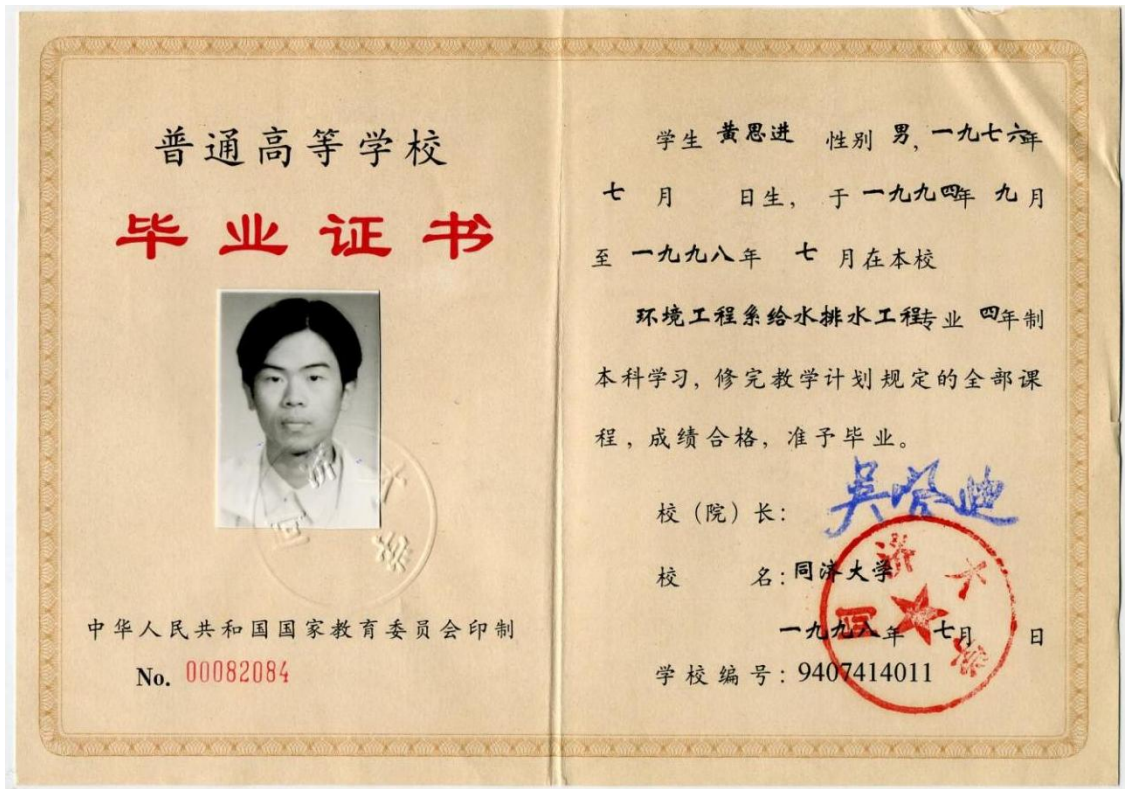 普通高等学校
毕业证书
中华人民共和国国家教育委员会印制
No. 00082084
学生 黄思进 性别 男, 一九七六年
七 月 日生, 于 一九九四年 九月
至 一九九八年 七 月在本校
环境工程系给水排水工程专业 四年制
本科学习, 修完教学计划规定的全部课
程, 成绩合格, 准予毕业。
校（院）长: 吴启迪
校 名: 同济大学
一九九八年 七月 日
学校编号: 9407414011
同济大学
同济大学